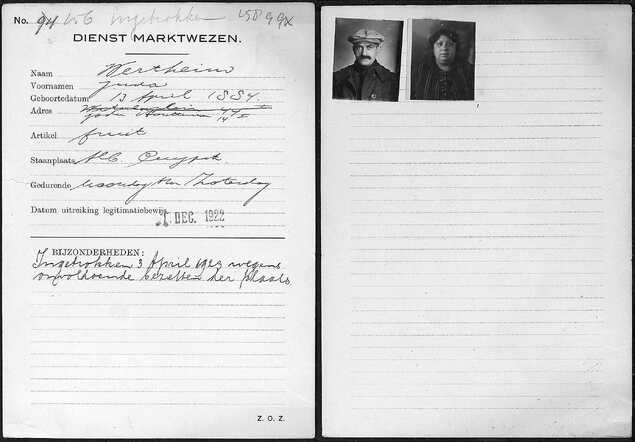 No. 94 156 Ingetrokken 158 99x
DIENST MARKTWEZEN.
Naam Wertheim
Voornamen Juda
Geboortedatum 13 April 1884.
Adres
Artikel fruit
Staanplaats Alb. Cuypst.
Gedurende Maandag t/m Zaterdag
Datum uitreiking legitimatiebewijs DEC. 1922
BIJZONDERHEDEN:
Ingetrokken 3 April 1923 wegens
onvoldoende bezetten der plaats
Z. O. Z.